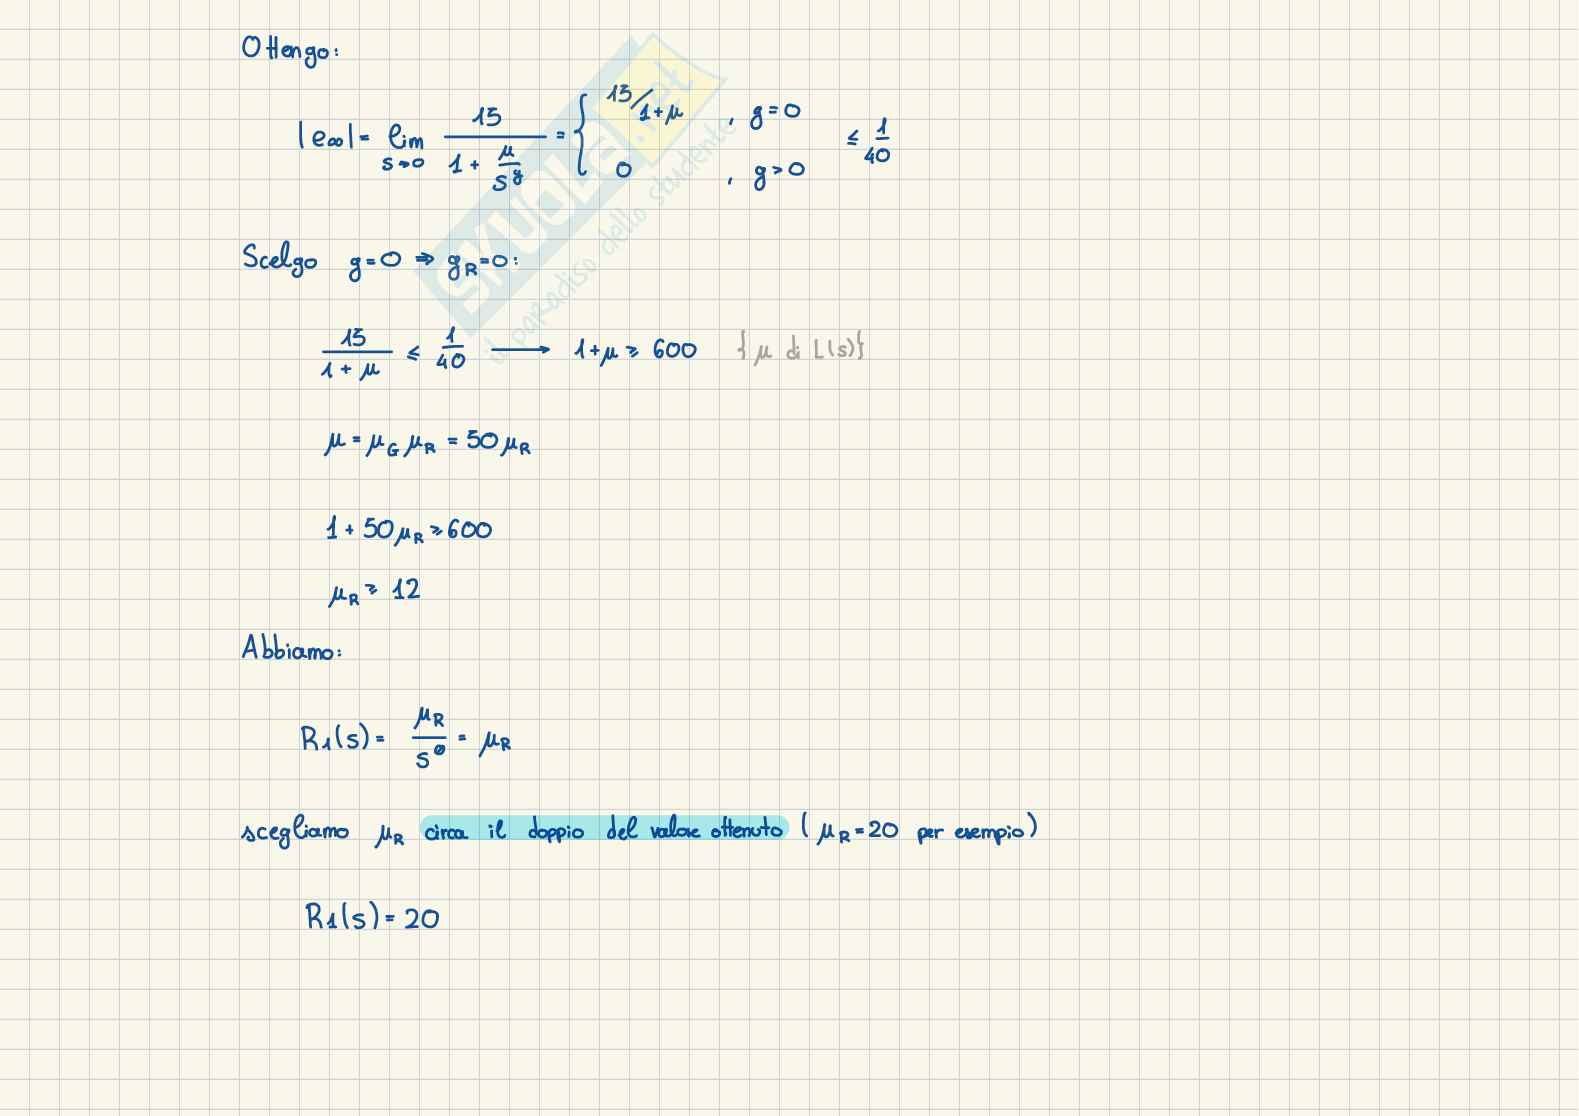 Ottengo:
|e∞| = lim s→0 15 / (1 + μ/s^g) = { 15/1+μ , g=0 ≤ 1/40
0 , g>0
Scelgo g=0 ⇒ gR=0:
15 / (1+μ) ≤ 1/40 ⟶ 1+μ ≥ 600 {μ di L(s)}
μ = μG μR = 50 μR
1 + 50 μR ≥ 600
μR ≥ 12
Abbiamo:
R1(s) = μR / s^0 = μR
scegliamo μR circa il doppio del valore ottenuto (μR=20 per esempio)
R1(s) = 20
SKUOLA.net
il paradiso dello studente